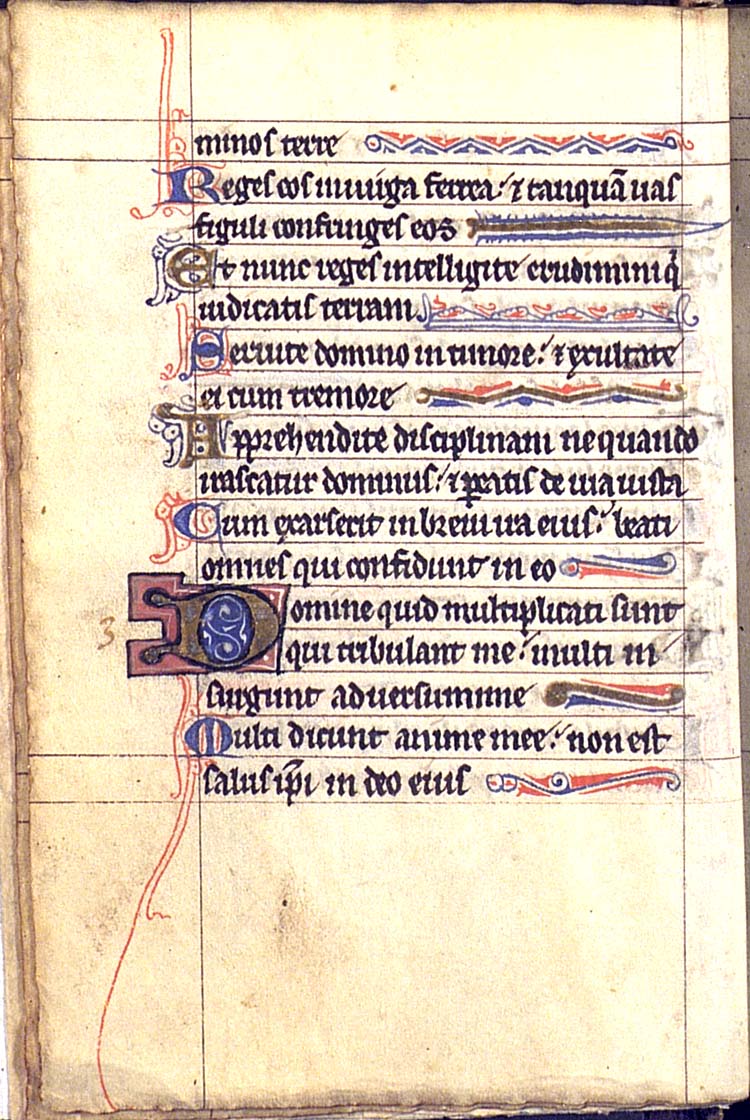 minos terre
Reges eos in uirga ferrea: ⁊ tanquā uas
figuli confringes eos
Et nunc reges intelligite erudimini q̄
iudicatis terram.
Seruite domino in timore: ⁊ exultate
ei cum tremore
Apprehendite disciplinam ne quando
irascatur dominus: ⁊ ꝑeatis de uia iusta
Cum exarserit in breui ira eius: beati
omnes qui confidunt in eo
3 Domine quid multiplicati sunt
qui tribulant me: multi in
surgunt aduersum me
Multi dicunt anime mee: non est
salus ip̄i in deo eius